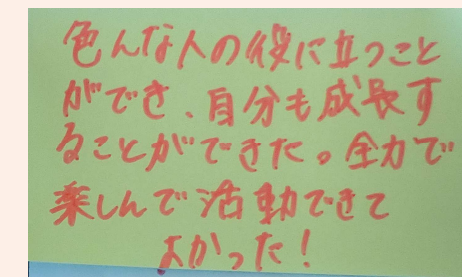 色んな人の役に立つこと
ができ、自分も成長す
ることができた。全力で
楽しんで活動できて
よかった!